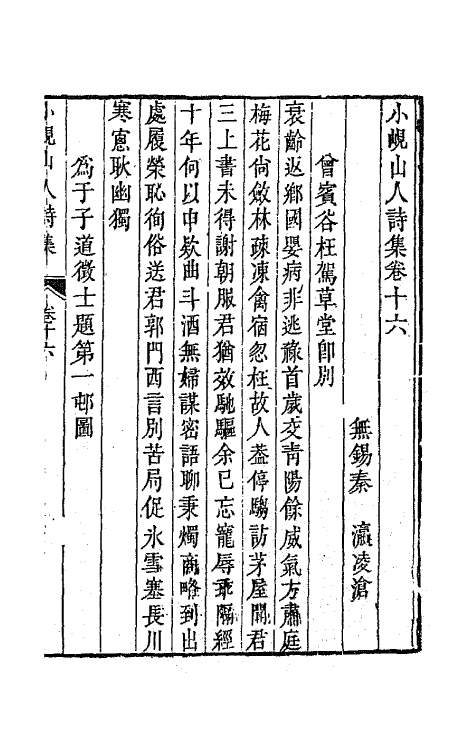 小峴山人詩集卷十六
無錫秦　瀛凌滄
曾賓谷枉駕草堂卽別
衰齡返鄉國嬰病非逃祿首歲交靑陽餘威氣方肅庭
梅花尙斂林疎凍禽宿忽枉故人葢停騶訪茅屋聞君
三上書未得謝朝服君猶效馳驅余已忘寵辱乖隔經
十年何以申欵曲斗酒無婦謀密語聊秉燭商略到出
處履榮恥徇俗送君郭門西言別苦局促氷雪塞長川
寒窻耿幽獨
爲于子道徵士題第一邨圖
小峴山人詩集
卷十六